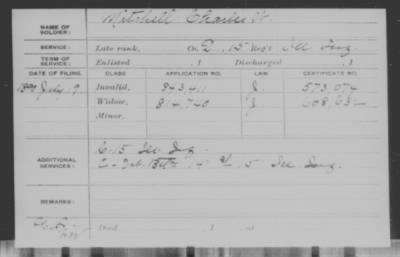 NAME OF SOLDIER: Mitchell Charles W.
SERVICE: Late rank, Co. D, 15 Reg't Ill Inf
TERM OF SERVICE: Enlisted , 1 Discharged , 1
DATE OF FILING. CLASS APPLICATION NO. LAW CERTIFICATE NO.
July 9 Invalid, 843,411 J. 573,074
Widow, 814,740 J
Minor,
ADDITIONAL SERVICES: C. 15 Ill. Inf.
15 Ill Inf.
REMARKS:
Died , 1 , at